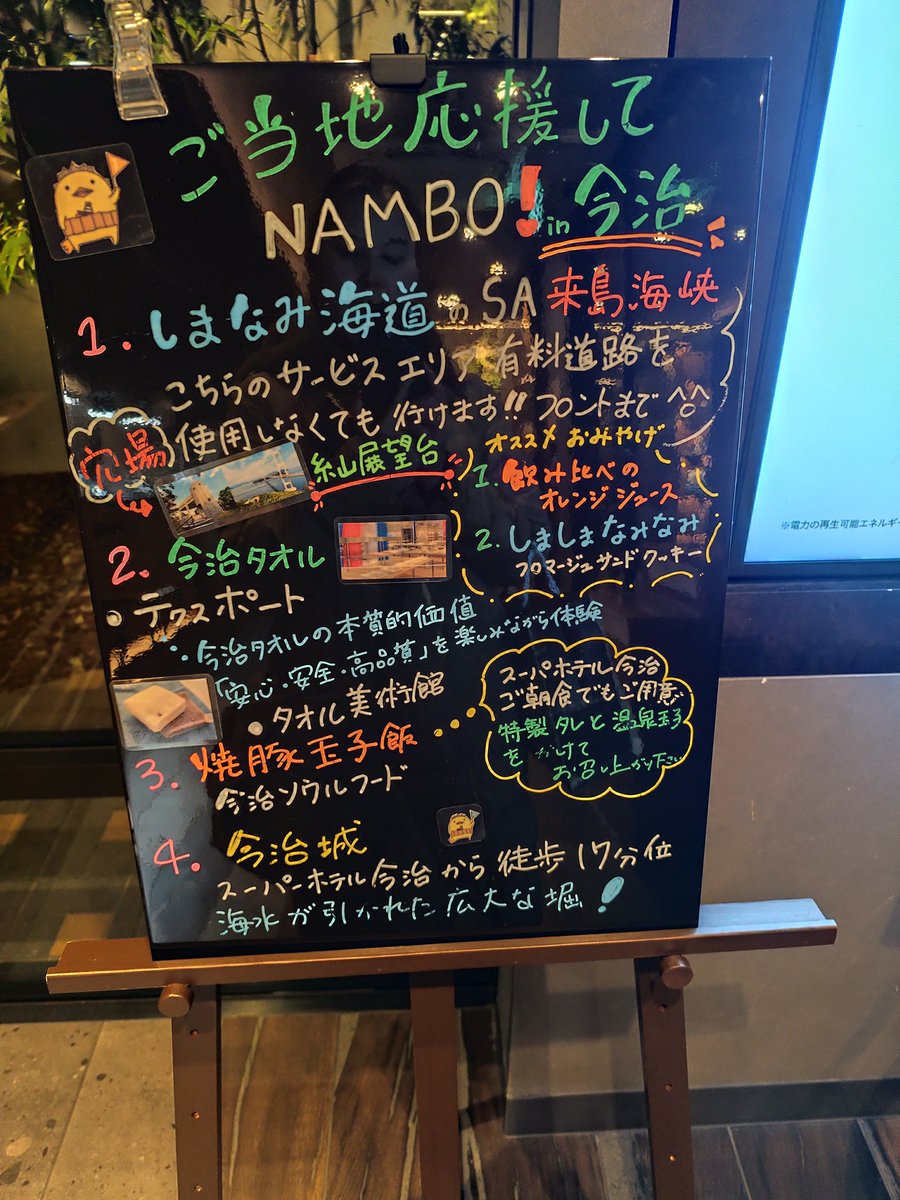 ご当地応援して
NAMBO! in 今治
1. しまなみ海道のSA 来島海峡
こちらのサービスエリア有料道路を
使用しなくても行けます!! フロントまで^○^
穴場
糸山展望台
オススメ おみやげ
1. 飲み比べの
オレンジジュース
2. しましまなみなみ
フロマージュサンドクッキー
2. 今治タオル
・テクスポート
∵今治タオルの本質的価値
「安心・安全・高品質」を楽しみながら体験
・タオル美術館
3. 焼豚玉子飯
今治ソウルフード
スーパーホテル今治
ご朝食でもご用意
特製タレと温泉玉子
をかけて
お召し上がり下さい
4. 今治城
スーパーホテル今治から徒歩17分位
海水が引かれた広大な堀!
※電力の再生可能エネルギー